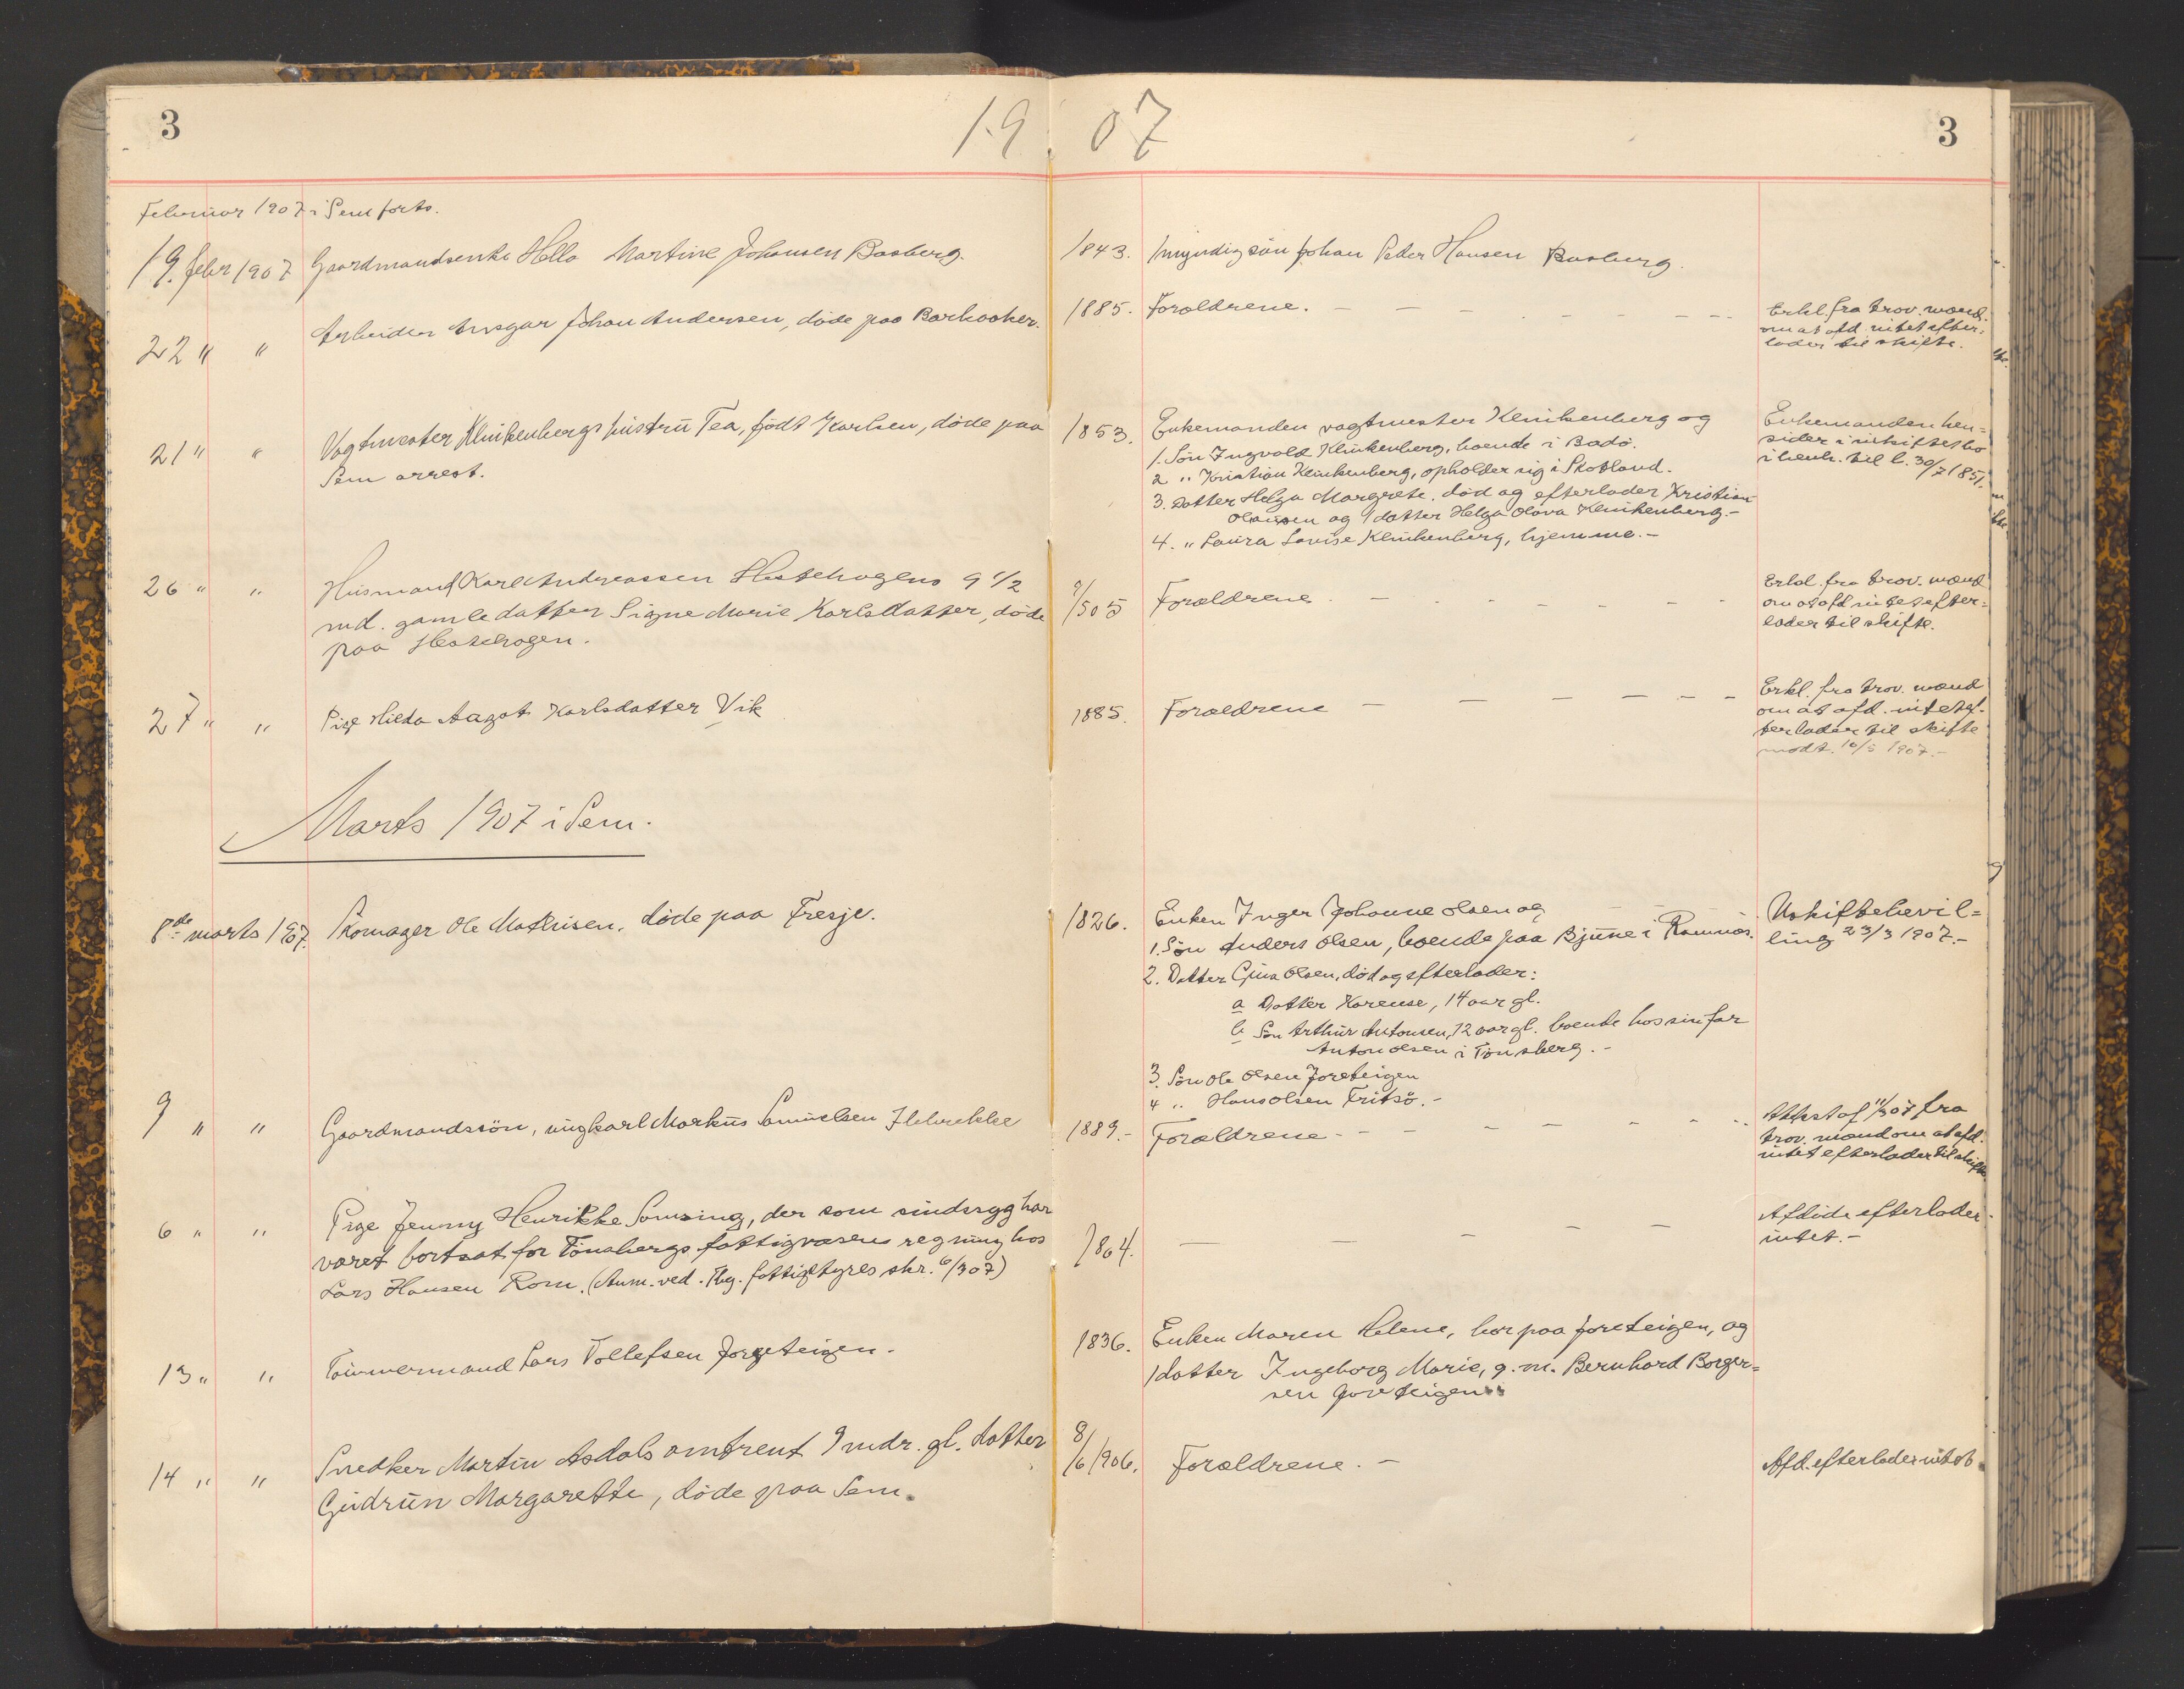 3
19 07
3
Februar 1907 i Sem forts.
19. febr 1907 Gaardmandsenke Hella Martine Johansen Basberg. 1843. 1 myndig sön Johan Peder Hansen Basberg.
22 " " Arbeider Ansgar Johan Andersen, döde paa Barkaaker. 1885. Forældrene. — — — — — —
Erkl. fra trov. mænd
om at afd. intet efter-
lader til skifte.
21 " " Vagtmester Klinkenbergs hustru Tea, född Karlsen, döde paa
Sem arrest.
1853. Enkemanden vagtmester Klinkenberg og
1. Sön Ingvald Klinkenberg, boende i Bodö.
2 " Kristian Klinkenberg, opholder sig i Skotland.
3. Datter Helga Margrete, död og efterlader Kristian
Olausen og 1 datter Helga Olava Klinkenberg.-
4. " Laura Lovise Klinkenberg, hjemme.-
Enkemanden hen=
sidder i uskiftet bo
i henh. til l. 30/7 1851.
26 " " Husmand Karl Andreassen Hestehagens 9 1/2
md. gamle datter Signe Marie Karlsdatter, döde
paa Hestehagen.
9/5 05 Forældrene. — — — — — —
Erkl. fra trov. mænd
om at afd. intet efter=
lader til skifte.
27 " " Pige Hilda Aagot Karlsdatter Vik 1885. Forældrene — — — — — —
Erkl. fra trov. mænd
om at afd. intet ef-
terlader til skifte
modt. 10/5 1907.-
Marts 1907 i Sem.
8de marts 1907. Skomager Ole Mathisen, döde paa Fresje.
1826. Enken Inger Johanne Olsen og
1. Sön Anders Olsen, boende paa Bjune i Ramnæs.
2. Datter Gina Olsen, död og efterlader:
a Datter Karense, 14 aar gl.
b Sön Arthur Antonsen, 12 aar gl. boende hos sin far
Anton Olsen i Tönsberg.-
3. Sön Ole Olsen Joreteigen
4 " Hans Olsen Fritsö.-
Uskiftebevil=
ling 23/3 1907.-
9 " " Gaardmandssön, ungkarl Markus Samuelsen Ilebrekke 1889.- Forældrene - - - - - -
Attest af 11/3 07 fra
trov. mænd om at afd.
intet efterlader til skifte.
6 " " Pige Jenny Henrikke Samsing, der som sindssyg har
været bortsat for Tönsbergs fattigvæsens regning hos
Lars Hansen Rom. (Anm. ved Tbg. fattigstyres skr. 6/3 07)
1864. — — — — —
Afdöde efterlader
intet.-
13 " " Tömmermand Lars Tollefsen Joreteigen.
1836. Enken Maren Helene, bor paa Joreteigen, og
1 datter Ingeborg Marie, g. m. Bernhard Borger=
sen Joreteigen
14 " " Snedker Martin Asdals omtrent 9 mdr. gl. datter
Gudrun Margarette, döde paa Sem.
8/6 1906. Forældrene.-
Afd. efterlader intet.